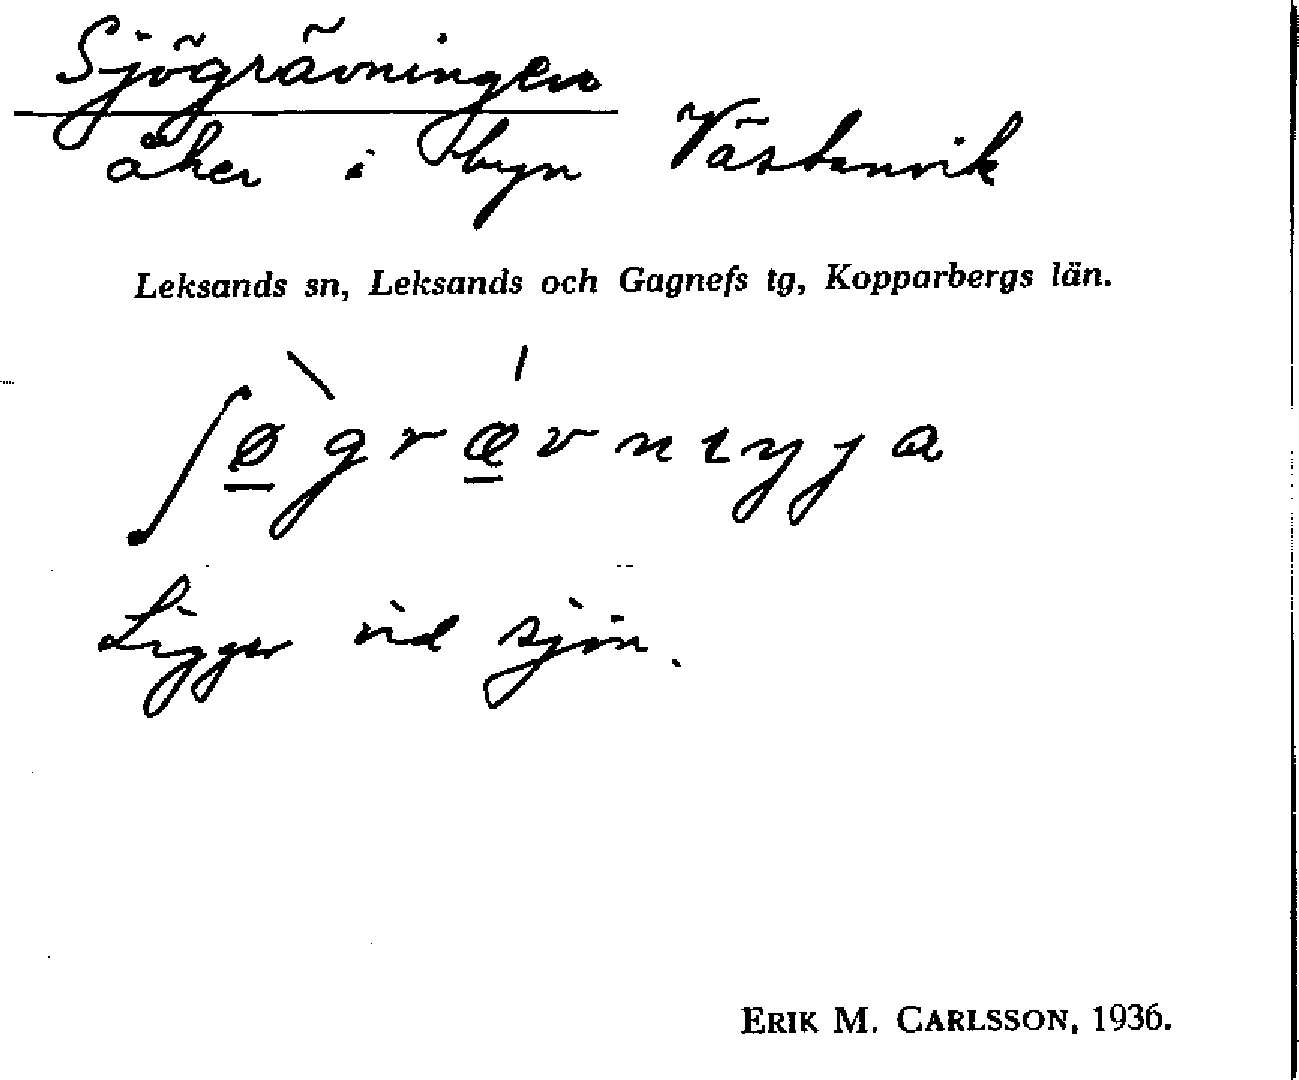 Sjögrävningen
åker i byn Västanvik
Leksands sn, Leksands och Gagnefs tg, Kopparbergs län.
ʃø̱̀grǽ̱vnıŋja
Ligger vid sjön.
ERIK M. CARLSSON, 1936.